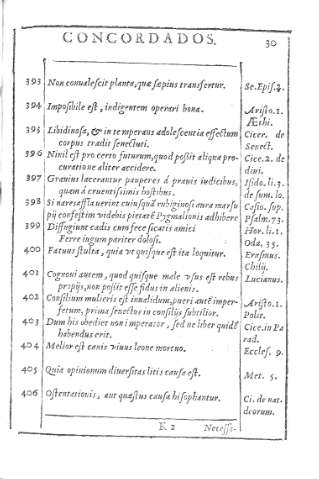 CONCORDADOS. 30
393 Non conualescit planta, quæ sæpius transfertur. Se. Epis. 2.
394 Imposibile est, indigentem operari bona. Aristo. 1. Æthi.
395 Libidinosa, & in temperans adolescentia effectum Cice. de
corpus tradit senectuti. Senect.
396 Nihil est pro certo futurum, quod posit aliqua pro- Cice. 2. de
curatione aliter accidere. diui.
397 Grauius lacerantur pauperes á prauis iudicibus, Isido. li. 3.
quam á cruentissimis hostibus. de sum. bo.
398 Casio. sup.
pij confestim videbis pietatē Pygmalionis adhibere Psalm. 73.
399 Diffugiunt cadis cum fece siccatis amici Hor. li. 1.
Ferre iugum pariter dolosi. Oda. 35.
400 Fatuus stulta, quia vt quisque est ita loquitur. Erasmus.
Chilij.
401 Cognoui autem, quod quisque male vsus est rebus Lucianus.
proprijs, non posse esse fidus in alienis.
402 Consilium mulieris est inualidum, pueri autē imper- Aristo. 1.
fectum, prima senectus in consilijs subtilior. Polit.
403 Dum his obediet non imperator, sed ne liber quidē Cice. in Pa
habendus erit. rad.
404 Melior est canis viuus leone mortuo. Eccles. 9.
405 Quia opinionum diuersitas litis causa est. Met. 5.
406 Ostentationis, aut quæstus causa Ci. de nat.
deorum.
K 2 Necessi-